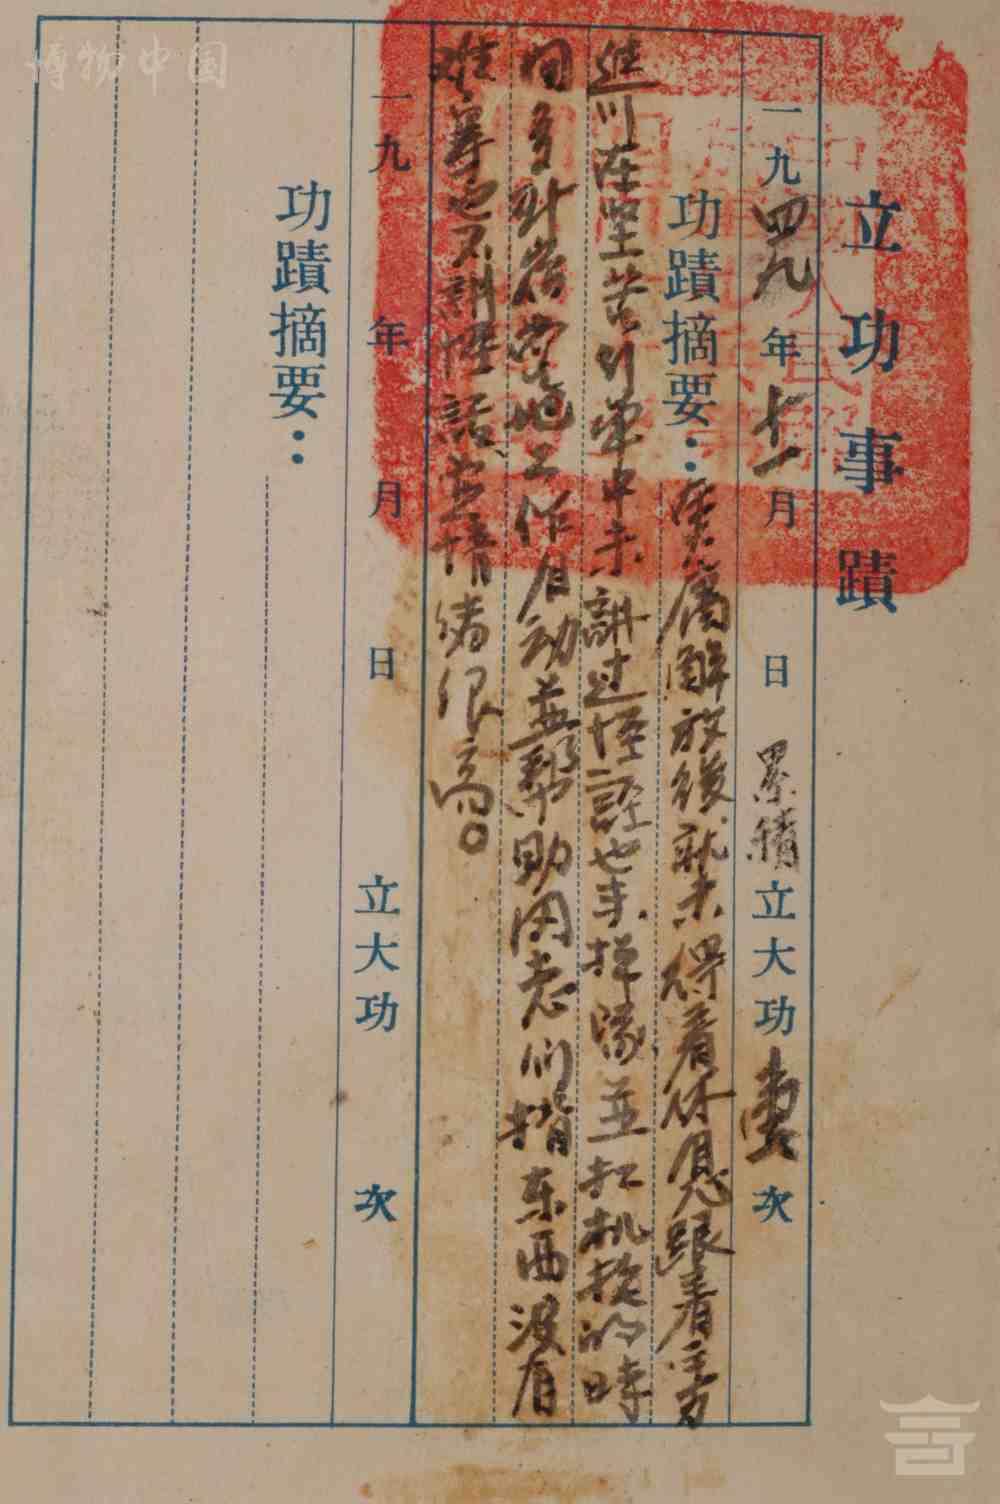 博物中国
立功事蹟
一九四九年十一月 日 累積立大功壹次
功蹟摘要：重慶解放後就未得着休息跟着主力
進川在坚苦行军中未講过怪話也未掉隊並扛机槍的時
间多計店當地工作自动並帮助同志们揹东西没有
难辜也不講怪話並情绪很高。
一九 年 月 日 立大功 次
功蹟摘要：